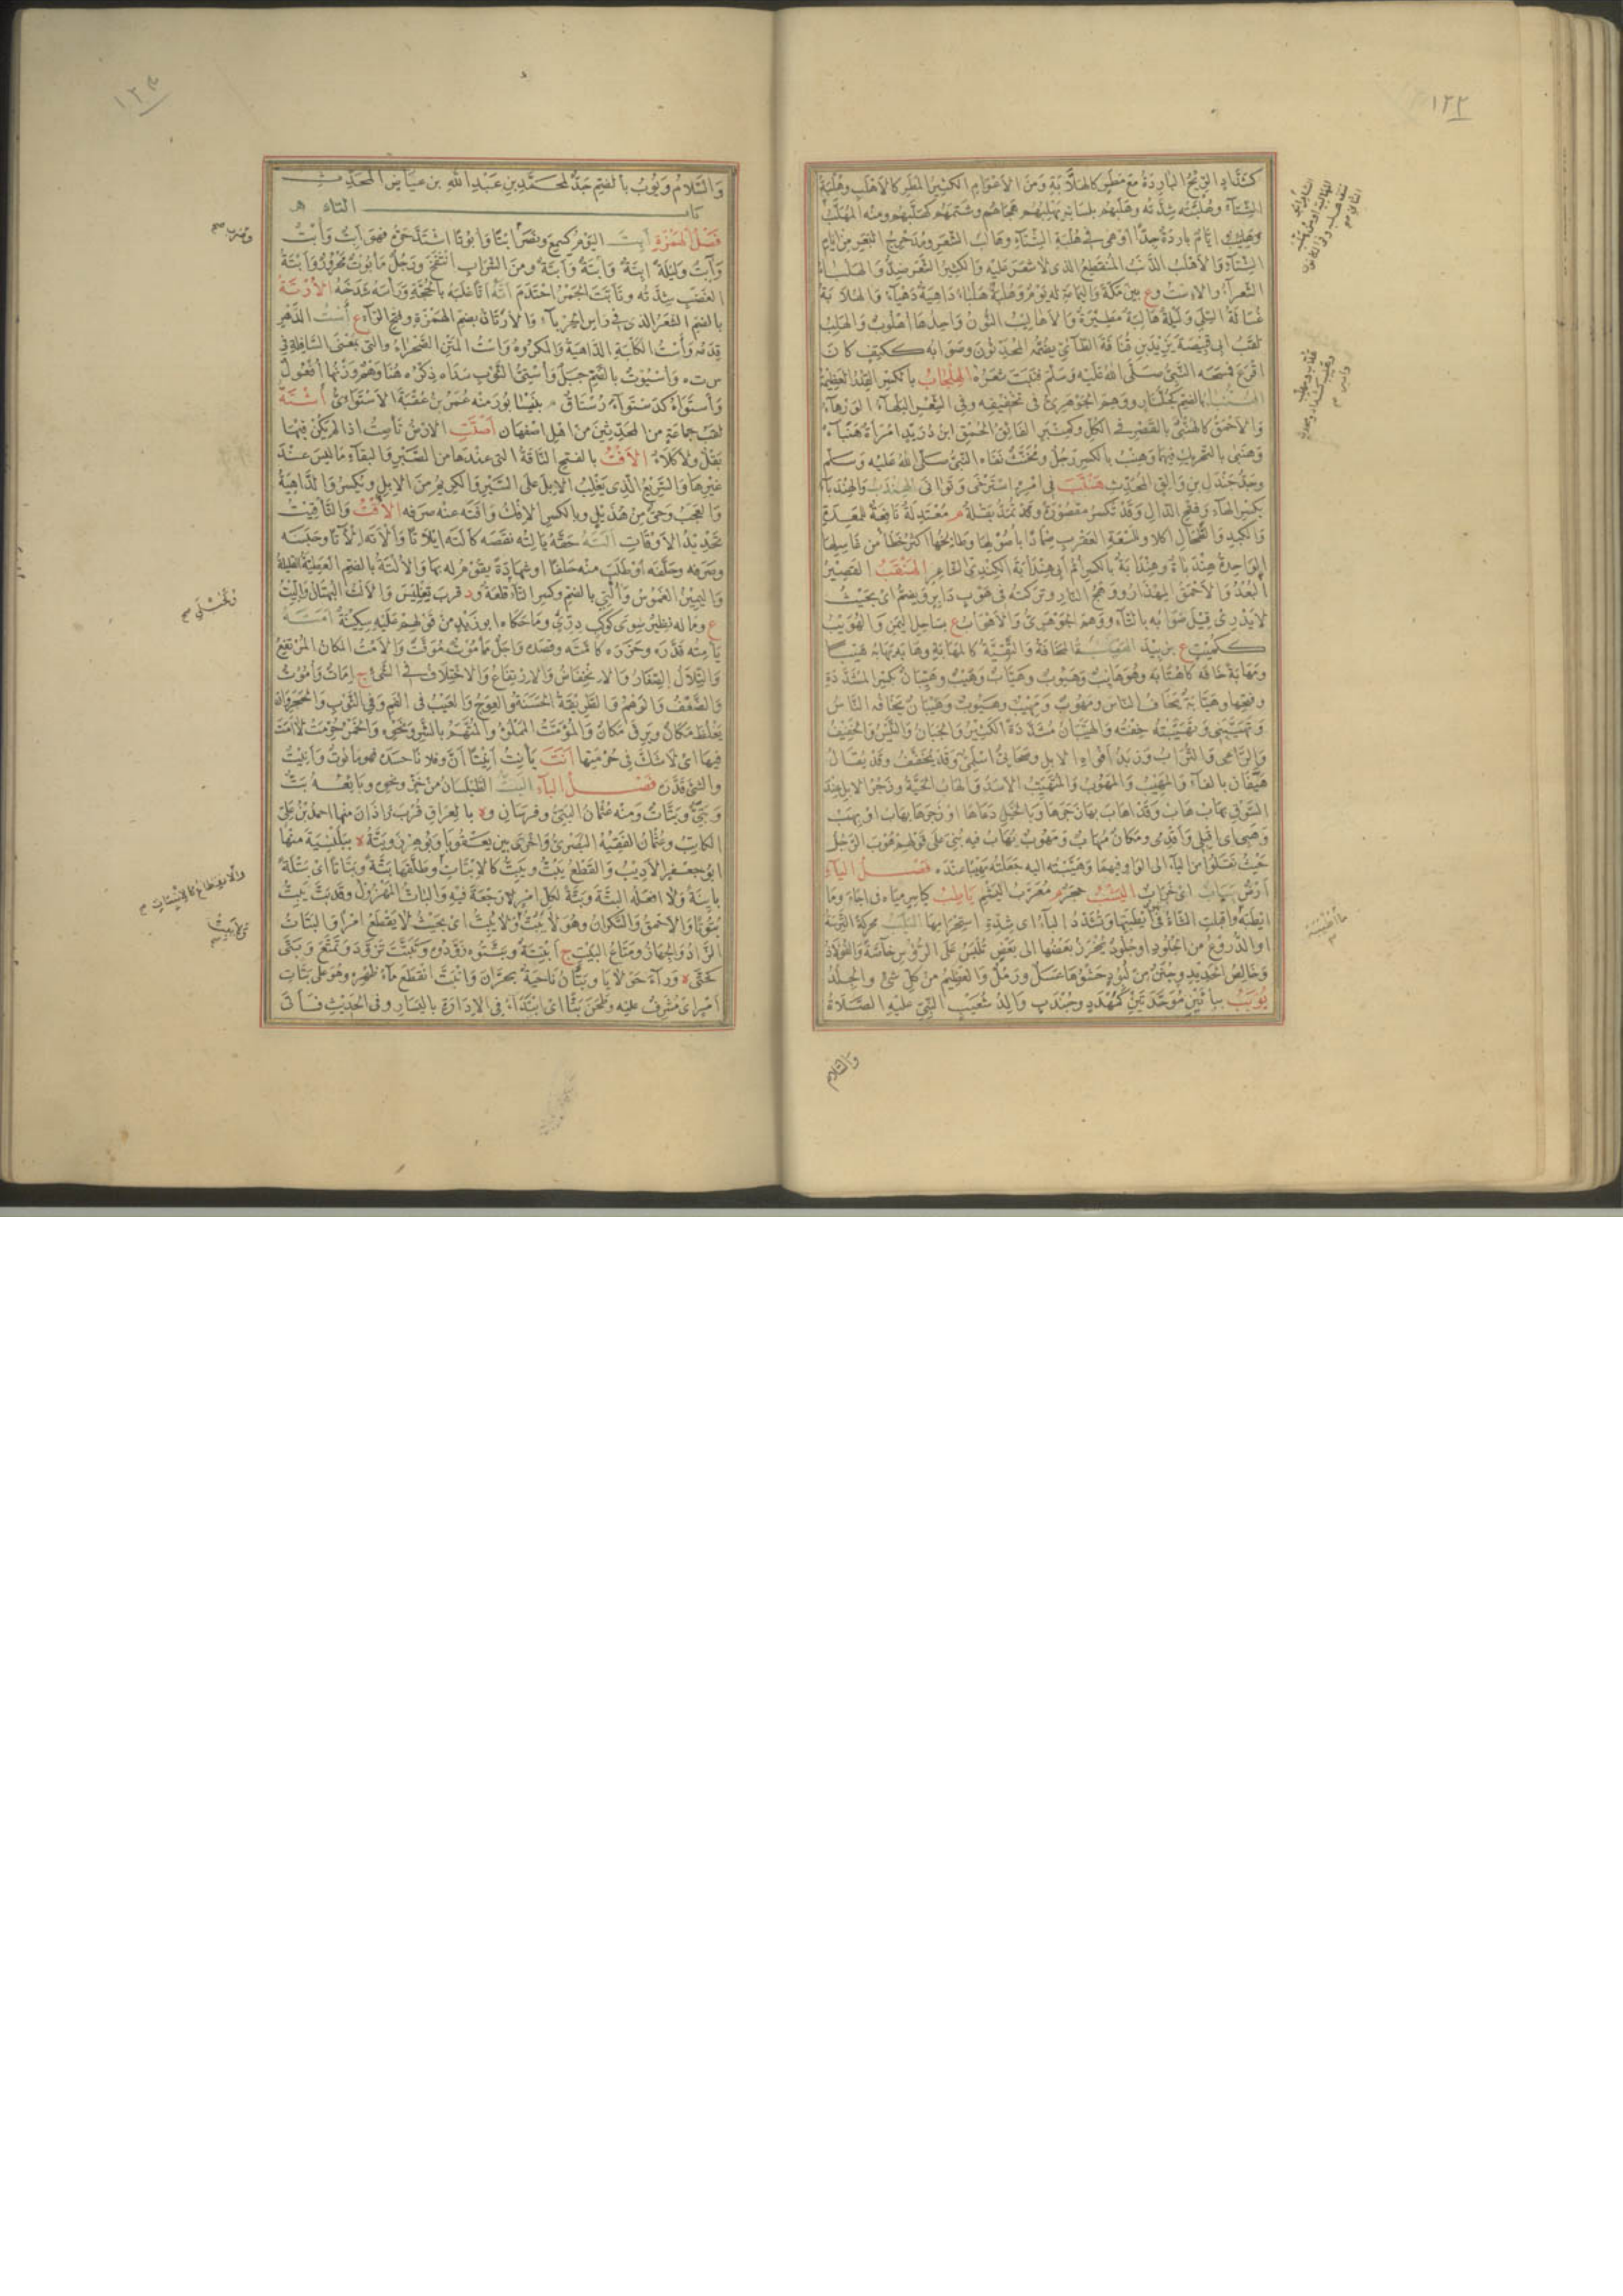 ١٢٢
كشداد الريح الباردة مع مطر كالهلابة ومن الاعوام الكثير المطر كالاهلب وهلبة
الشتاء وهلبته شدته وهلبهم بلسانه يهلبهم هجاهم وشتمهم كهلبهم ومنه المهلب
الشتاء والاهلب الذنب المنقطع والذى لا شعر عليه والكثير الشعر ضد والهلباء
الشعراء والاست وع بين مكة واليمامة له يوم وهلبة هلباء داهية دهياء والهلابة
غسالة السلى وليلة هالبة مطيرة والاهاليب الفنون واحدها اهلوب والهلب
لقب ابى قبيصة يزيد بن قنافة الطائى يضمه المحدثون وصوابه ككتف كان
اقرع فمسحه النبى صلى الله عليه وسلم فنبت شعره الهلجاب بالكسر القدر العظيمة
والاحمق كالهنبى بالقصر فى الكل وكمنبر الفائق الحمق ابن دريد امراة هنباء
وهنبى بالتحريك فيهما وهنب بالكسر رجل ومخنث نفاه النبى صلى الله عليه وسلم
وجد جندل بن والق المحدث هندب فى امره استرخى وتوانى الهندب والهندبا
بكسر الهاء وفتح الدال وقد تكسر مقصورة وقد تمد بقلة م معتدلة نافعة للمعدة
والكبد والطحال اكلا وللسعة العقرب ضمادا باصولها وطابخها اكثر خطا من غاسلها
الواحدة هندباءة وهندابة بالكسر ام ابى هندابة الكندى الشاعر الهنقب القصير
البعد والاحمق المهذار ووهج النار وتركته فى هوب داير ويضم اى بحيث
لا يدرى قيل صوابه بالتاء ووهم الجوهرى والاهواب ع بساحل اليمن والهويب
كـكميت ع بزبيد الهيبة المخافة والتقية كالمهابة وهابه يهابه هيبا
ومهابة خافه كاهتابه وهو هايب وهيوب وهياب وهيب وهيبان بكسر المشددة
وفتحها وهيابة يخاف الناس ومهوب ومهيب وهيوب وهيبان يخافه الناس
وتهيبنى وتهيبته خفته والهيبان مشددة الكثير والجبان والتيس والخفيف
والراعى والتراب وزبد افواه الابل وصحابى اسلمى وقد يخفف وقد يقال
هيفان بالفاء والمهيب والمهوب والمتهيب الاسد والهاب الحية وزجر الابل عند
السوق بهاب هاب وقد اهاب بها زجرها وبالخيل دعاها او زجرها بهاب او بهب
وهبى اى اقبلى واقدمى ومكان مهاب ومهوب يهاب فيه بنى على قولهم هوب الرجل
حيث نقلوا من الياء الى الواو فيهما وهيبته اليه جعلته مهيبا عنده فصل الياء
ارض يباب اى خراب اليشب حجر م معرب اليشم ياطب كياسر مياه فى اجاء وما
ايطبه واقبلت الشاة فى ايطبتها وتشدد الباء اى شدة استحرامها اليلب محركة الترسة
او الدروع من الجلود او جلود يخرز بعضها الى بعض تلبس على الرؤس خاصة والفولاذ
وخالص الحديد وجنن من لبود حشوها عسل ورمل والعظيم من كل شئ والجلد
يوبب بباءين موحدتين كمهدد وجندب والد شعيب النبى عليه الصلاة
والسلام
١٢٣
والسلام ويوب بالضم جد لمحمد بن عبد الله بن عياض المحدث
باب التاء
فصل الهمزة ابت اليوم كسمع ونصر ابتا وابوتا اشتد حره فهو ابت وابت
وآبت وليلة ابتة وابتة وآبتة ومن الشراب انتفخ ورجل مابوت محرور وابتة
الغضب شدته وتابت الجمر احتدم اته اتا غلبه بالحجة وراسه شدخه الارتة
بالضم الشعر الذى فى راس الحرباء والارتان بضم الهمزة وفتح الراء ع است الدهر
قدمه واست الكلبة الداهية والمكروه واست المتن الصحراء والتى بمعنى السافلة فى
س ت ه واستيوت بالضم جبل واستى الثوب سداه ذكره هنا وهم ووزنها افعول
واستواء كدستواء رستاق بنيسابور منه عمر بن عقبة الاستوائى اشتة
لقب جماعة من المحدثين من اهل اصفهان اصتت الارض تاصت اذا لم يكن فيها
بقل ولا كلاء الافت بالفتح الناقة التى عندها من الصبر والبقاء ما ليس عند
غيرها والسريع الذى يغلب الابل على السير والكريم من الابل ويكسر والداهية
والعجب وحى من هذيل وبالكسر الافك وافته عنه صرفه الاقت والتاقيت
تحديد الاوقات الته حقه يالته نقصه كآلته ايلاتا والاته الاتا وحبسه
وصرفه وحلفه او طلب منه حلفا او شهادة يقوم له بها والالتة بالضم العطية القليلة
واليمين الغموس والتى بالضم وكسر التاء قلعة ود قرب تفليس والالت البهتان واليت
ع وما له نظير سوى كوكب درى وما حكاه ابو زيد من قولهم عليه سكينة امته
يامته قدره وحزره كامته وقصده واجل مامور موقت والامت المكان المرتفع
والتلال الصغار والانخفاض والارتفاع والاختلاف فى الشئ ج امات واموت
والضعف والوهن والطريقة الحسنة والعوج والعيب فى الفم وفى الثوب والحجر وان
يغلظ مكان ويرق مكان والمؤمت المملوء والمتهم بالشر ونحوه والخمر حرمت لا امت
فيها اى لا شك فى حرمتها انت يانت انيتا ان وفلانا حسده فهو مانوت وانيت
والشئ قدره فصل الباء البت الطيلسان من خز ونحوه وبايعه بتى
وبتى وبتات ومنه عثمان البتى وفرهانى وة بالعراق قرب راذان منها احمد بن على
الكاتب وعثمان الفقيه البصرى واخرى بين بعقوبا وبوهرز وبتة ة ببلنسية منها
ابو جعفر الاديب والقطع يبت ويبت كالابتات وطلقها بتة وبتاتا اى بتلة
باينة ولا افعله البتة وبتة لكل امر لا رجعة فيه والبات المهزول وقد بت يبت
بتوتا والاحمق والسكران وهو لا يبت ولا يبت اى بحيث لا يقطع امرا والبتات
الزاد والجهاز ومتاع البيت ج ابتة وبتتوه زودوه وتبتت تزود وتمتع وبتى
كحتى ة وراء حولايا وبتان ناحية بحران وانبت انقطع ماء ظهره وهو على بتات
امر اى مشرف عليه وطحن بتا اى ابتداء فى الادارة باليسار وفى الحديث فاتى
وضرب
والانقطاع كالانبتات